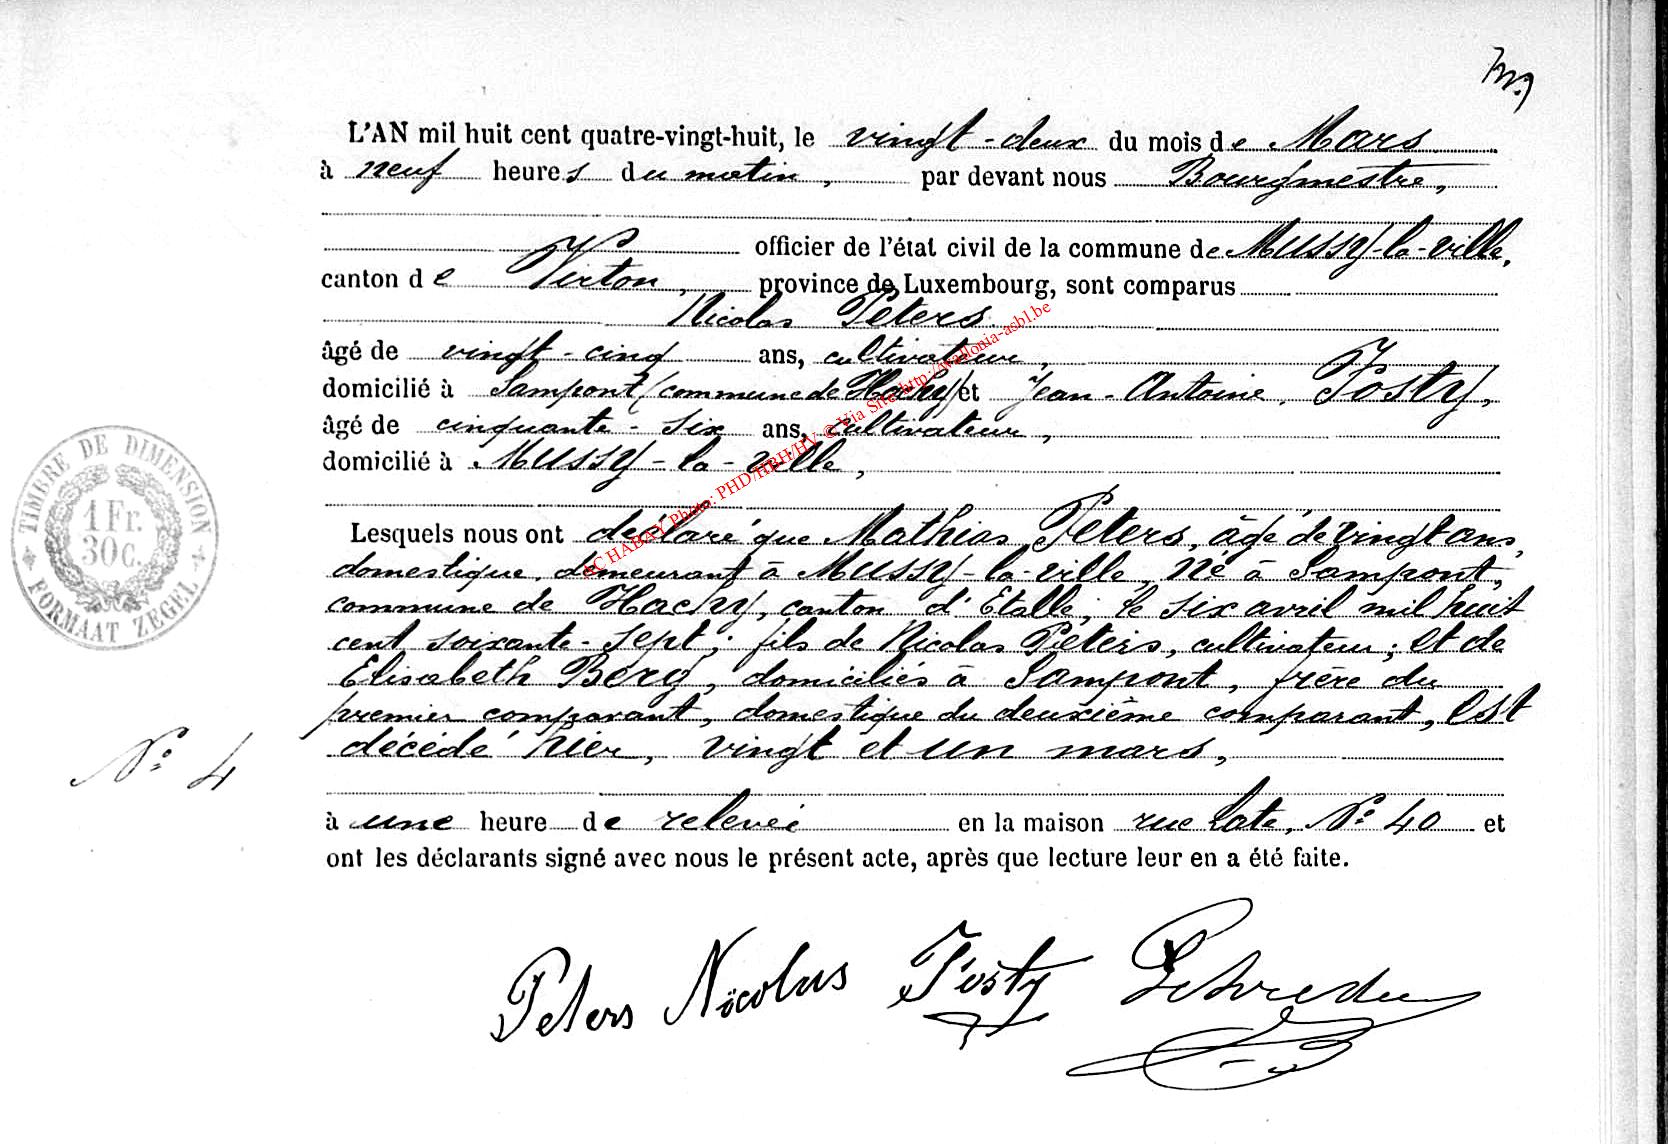 L'AN mil huit cent quatre-vingt-huit, le vingt-deux du mois de Mars
à neuf heures du matin, par devant nous Bourgmestre,
officier de l'état civil de la commune de Mussy-la-ville,
canton de Virton, province de Luxembourg, sont comparus
Nicolas Peters
âgé de vingt-cinq ans, cultivateur,
domicilié à Sampont (commune de Hachy) et Jean-Antoine Josty,
âgé de cinquante-six ans, cultivateur,
domicilié à Mussy-la-ville,
AC HABAY Photo: PHD/HBH/HV © Via Site http://wallonia-asbl.be
Lesquels nous ont déclaré que Mathias Peters, âgé de vingt ans,
domestique, demeurant à Mussy-la-ville, né à Sampont,
commune de Hachy, canton d'Etalle, le six avril mil huit
cent soixante-sept; fils de Nicolas Peters, cultivateur; et de
Elisabeth Berg, domiciliés à Sampont, frère du
premier comparant, domestique du deuxième comparant, est
décédé hier, vingt et un mars,
N° 4
à une heure de relevée en la maison rue Late, N° 40 et
ont les déclarants signé avec nous le présent acte, après que lecture leur en a été faite.
Peters Nicolas Josty
TIMBRE DE DIMENSION
1 Fr.
30 C.
FORMAAT ZEGEL